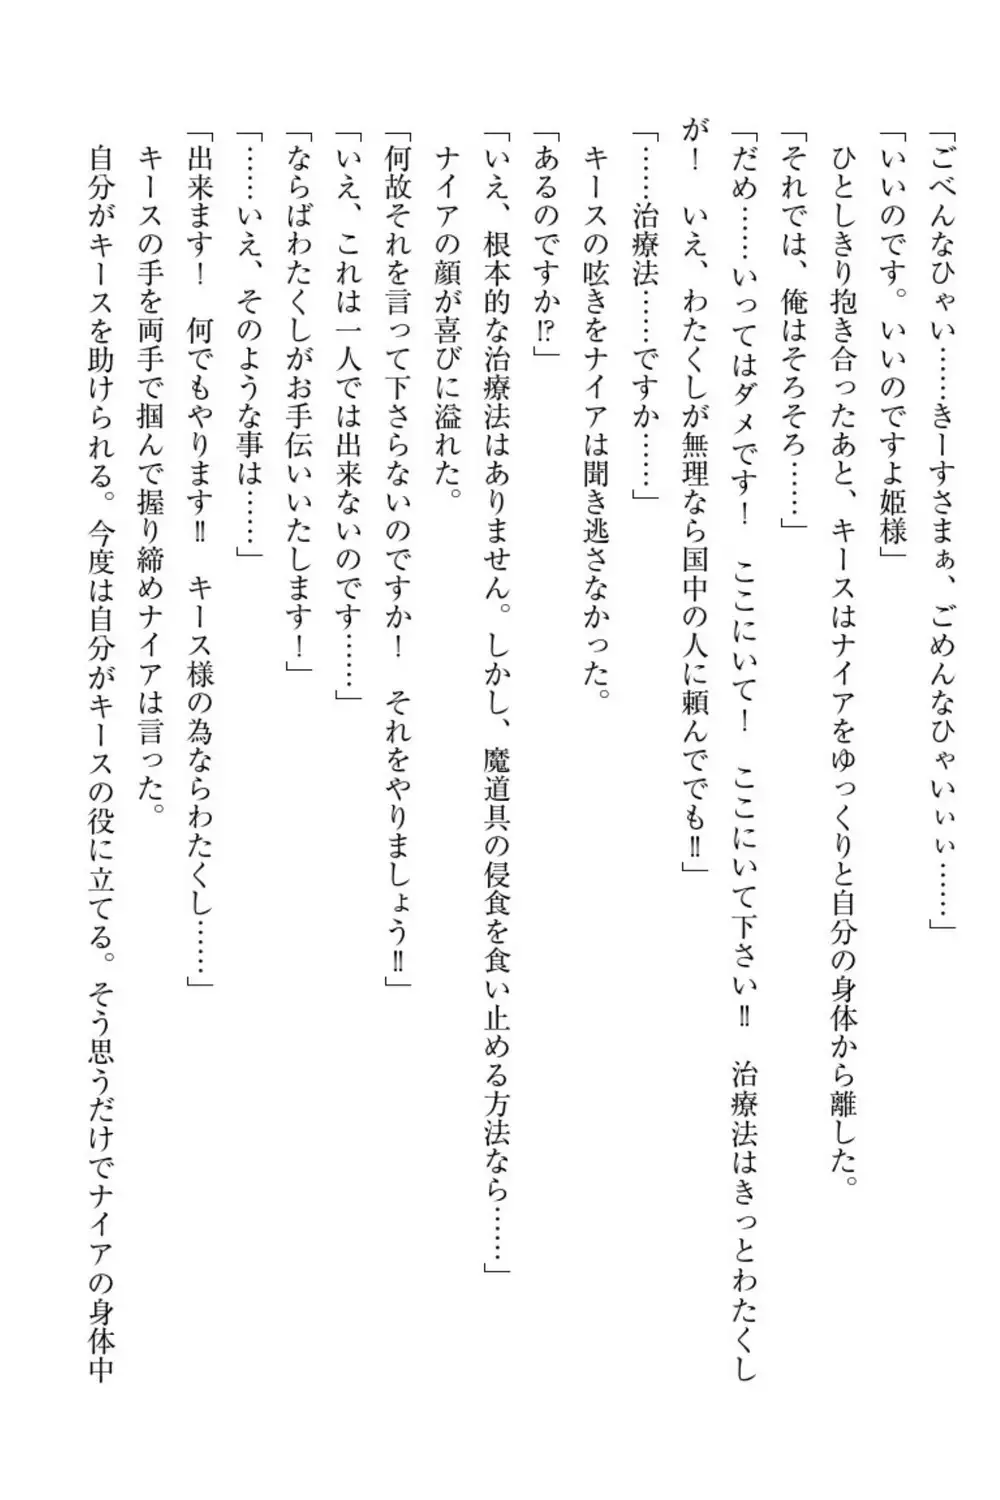 「ごべんなひゃい……きーすさまぁ、ごめんなひゃいぃぃ……」
「いいのです。いいのですよ姫様」
　ひとしきり抱き合ったあと、キースはナイアをゆっくりと自分の身体から離した。
「それでは、俺はそろそろ……」
「だめ……いってはダメです！　ここにいて！　ここにいて下さい‼　治療法はきっとわたくし
が！　いえ、わたくしが無理なら国中の人に頼んででも‼」
「……治療法……ですか……」
　キースの呟きをナイアは聞き逃さなかった。
「あるのですか⁉」
「いえ、根本的な治療法はありません。しかし、魔道具の侵食を食い止める方法なら……」
　ナイアの顔が喜びに溢れた。
「何故それを言って下さらないのですか！　それをやりましょう‼」
「いえ、これは一人では出来ないのです……」
「ならばわたくしがお手伝いいたします！」
「……いえ、そのような事は……」
「出来ます！　何でもやります‼　キース様の為ならわたくし……」
　キースの手を両手で掴んで握り締めナイアは言った。
　自分がキースを助けられる。今度は自分がキースの役に立てる。そう思うだけでナイアの身体中